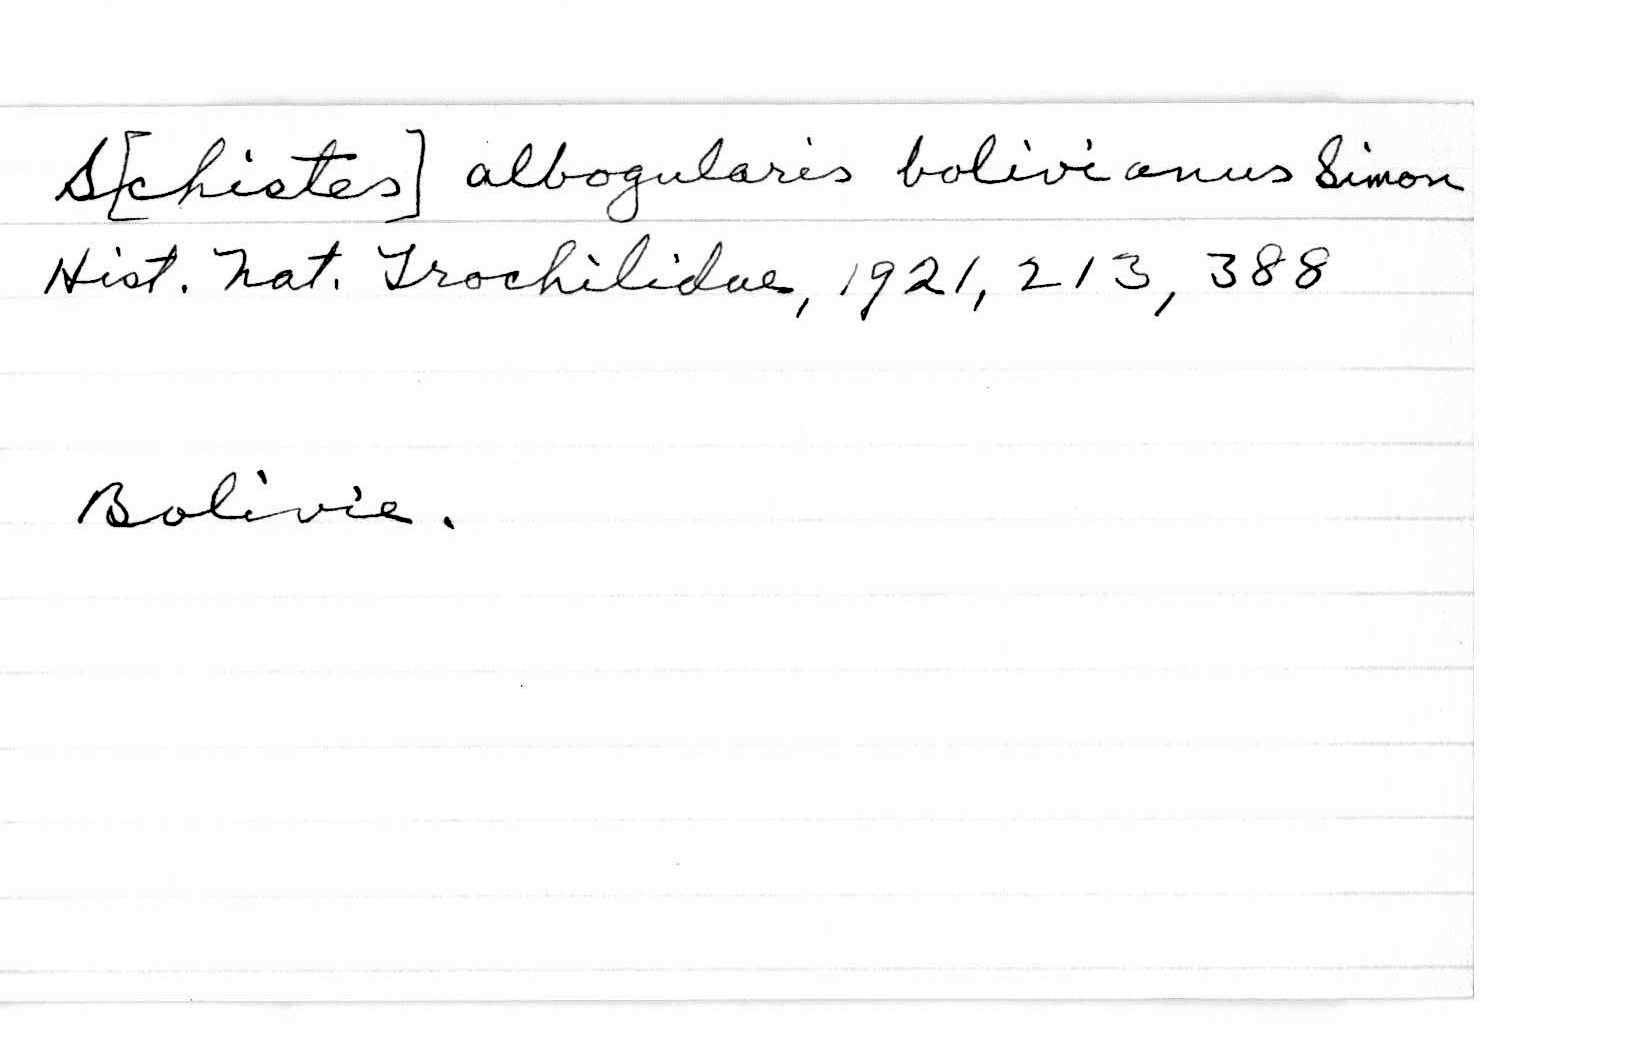 S[chistes] albogularis bolivianus Simon
Hist. Nat. Trochilidae, 1921, 213, 388
Bolivie.